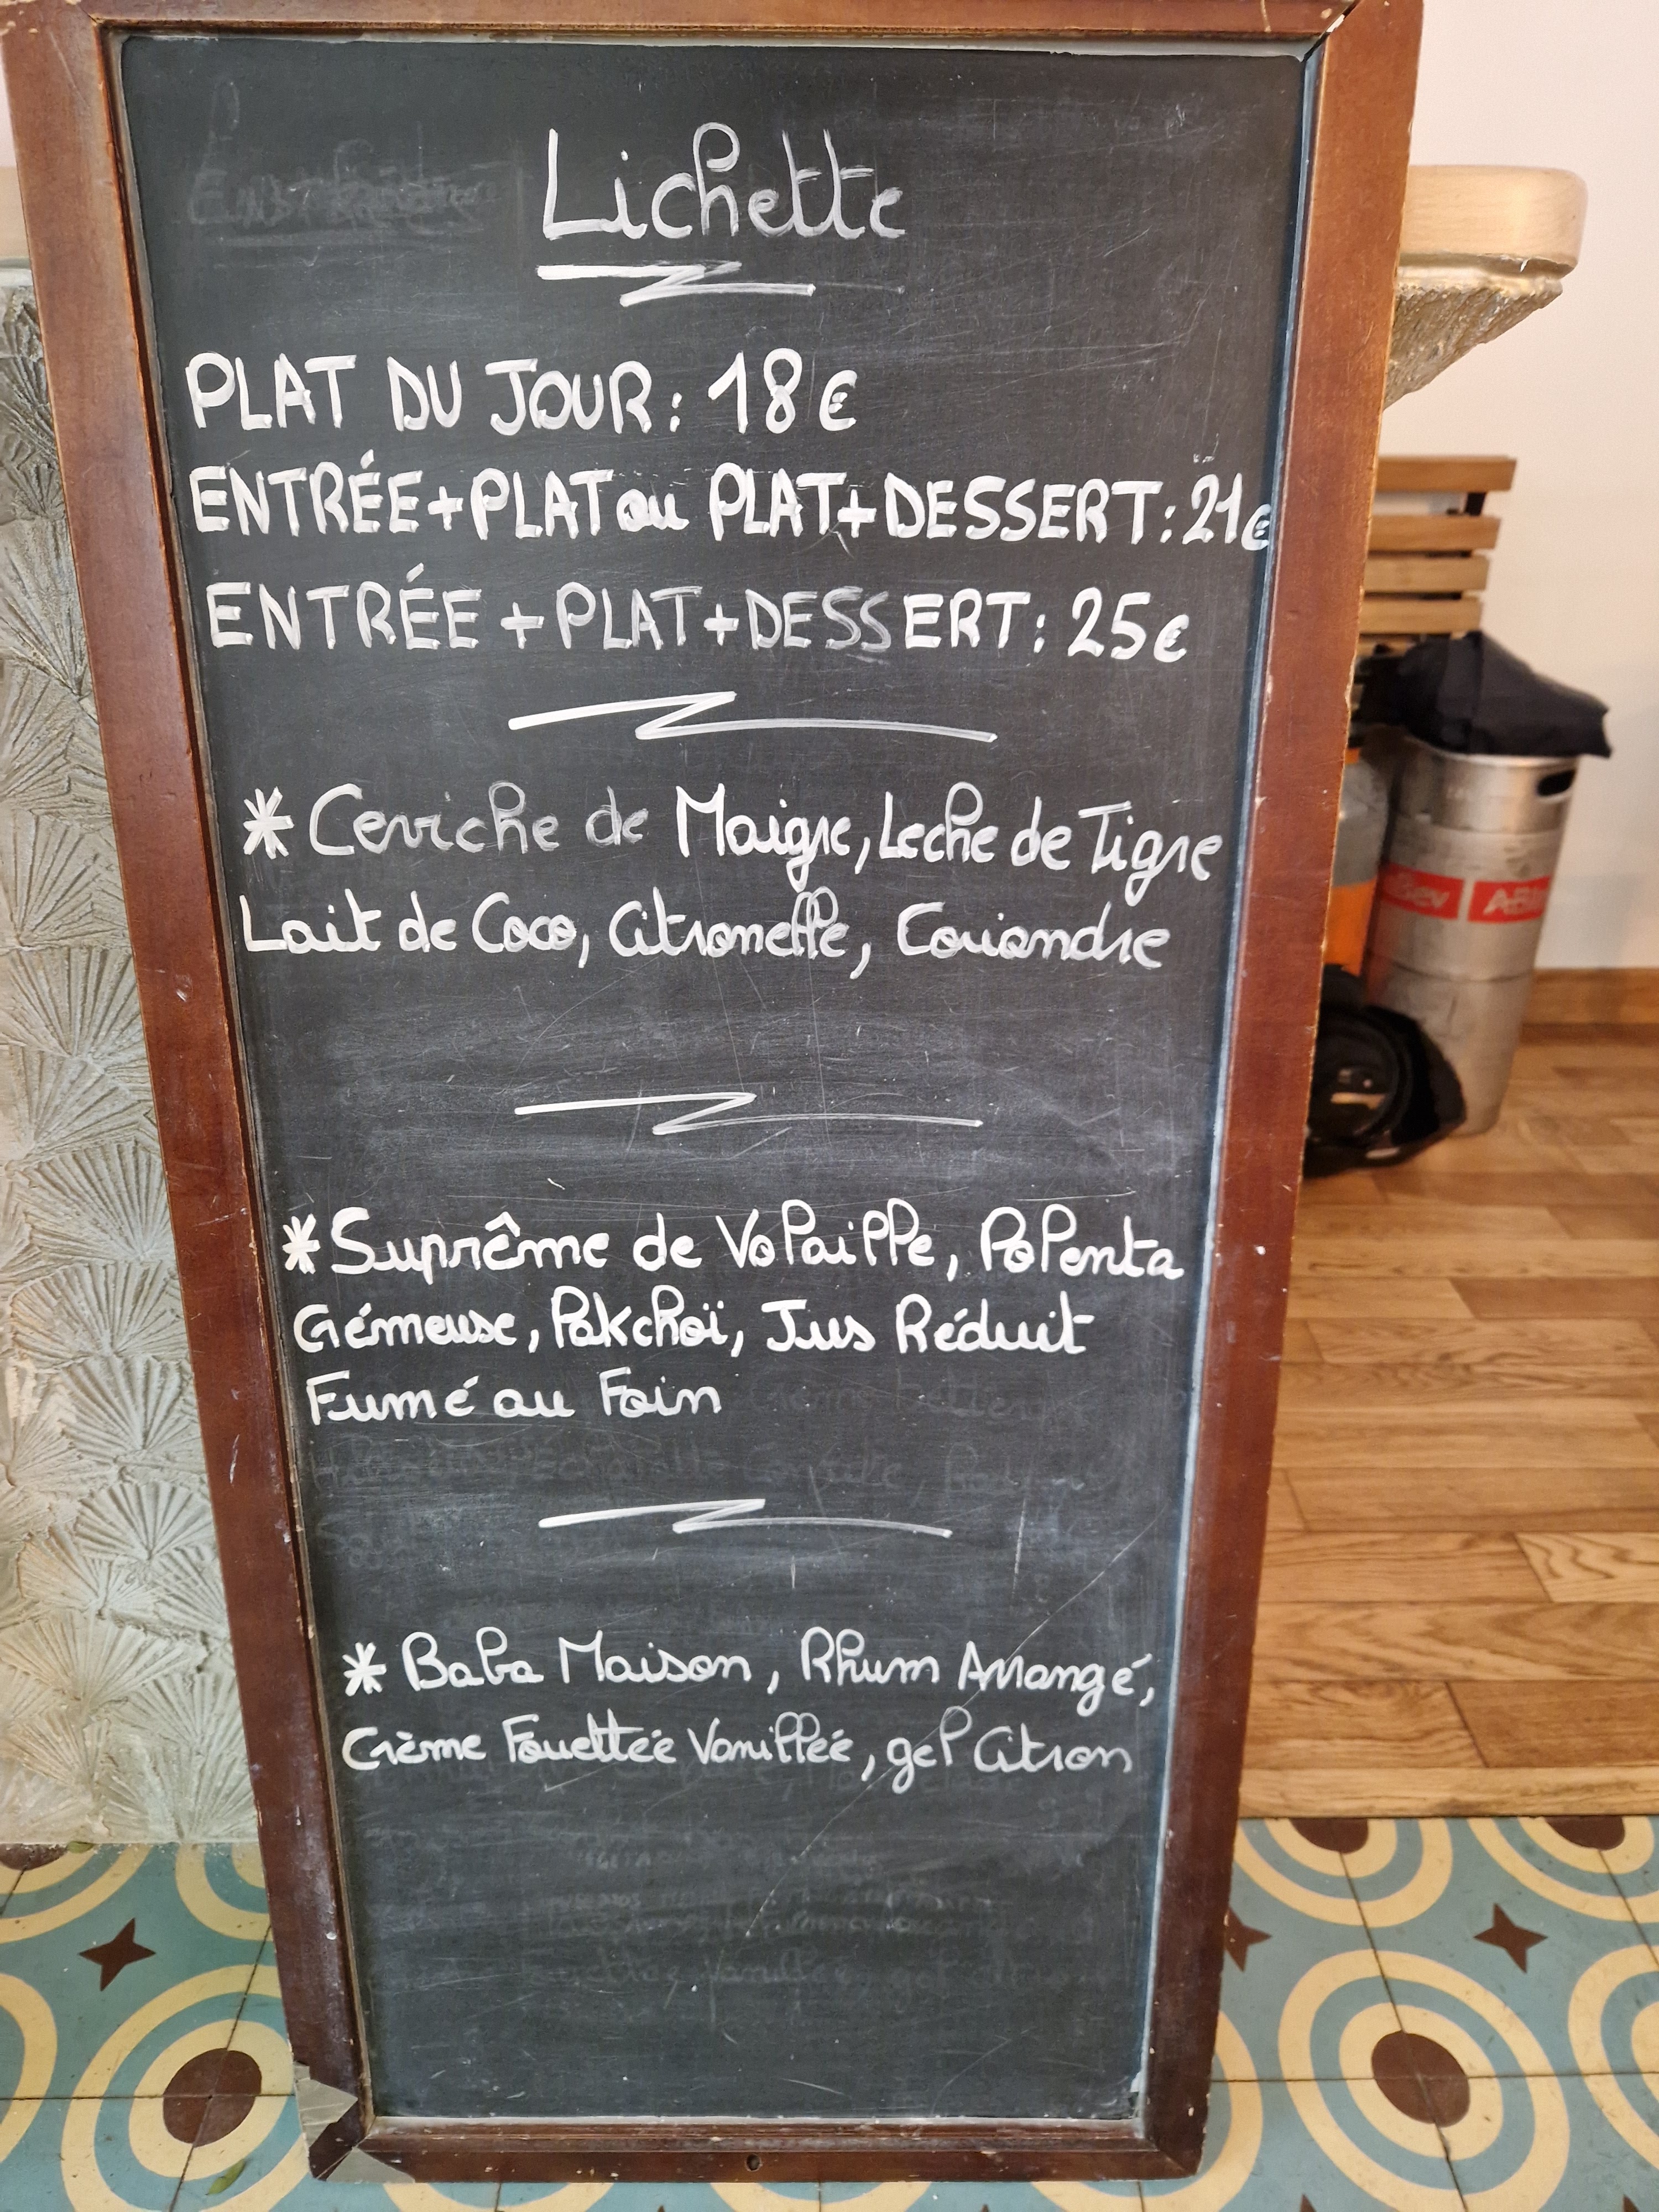 Lichette
PLAT DU JOUR: 18€
ENTRÉE+PLAT ou PLAT+DESSERT: 21€
ENTRÉE+PLAT+DESSERT: 25€
* Ceviche de Maigre, Leche de Tigre
Lait de Coco, Citronelle, Coriandre
* Suprême de Volaille, Polenta
Crémeuse, Pakchoï, Jus Réduit
Fumé au Foin
* Baba Maison, Rhum Arrangé,
Crème Fouettée Vanillée, gel Citron